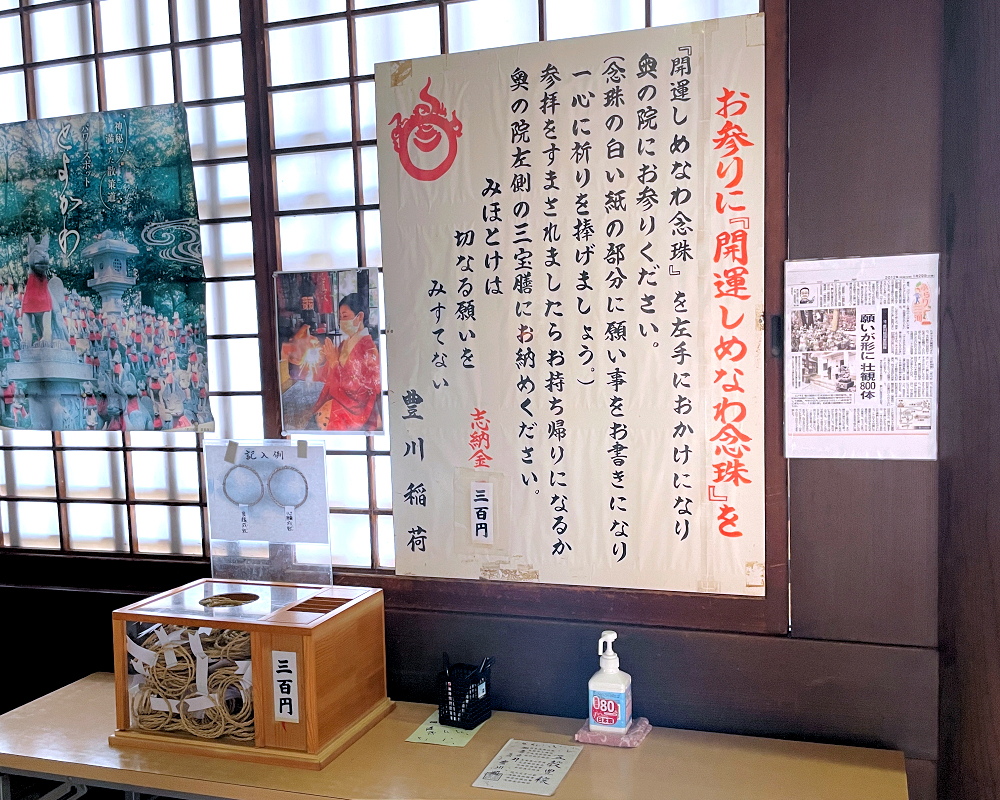 お参りに『開運しめなわ念珠』を
『開運しめなわ念珠』を左手におかけになり
奥の院にお参りください。
(念珠の白い紙の部分に願い事をお書きになり
一心に祈りを捧げましょう。)
参拝をすまされましたらお持ち帰りになるか
奥の院左側の三宝膳にお納めください。
みほとけは
切なる願いを
みすてない
志納金
三百円
豊川稲荷
神秘に
満ちた散策道
パワースポット
とよかわ
記入例
三百円
願いが形に 壮観800体
80